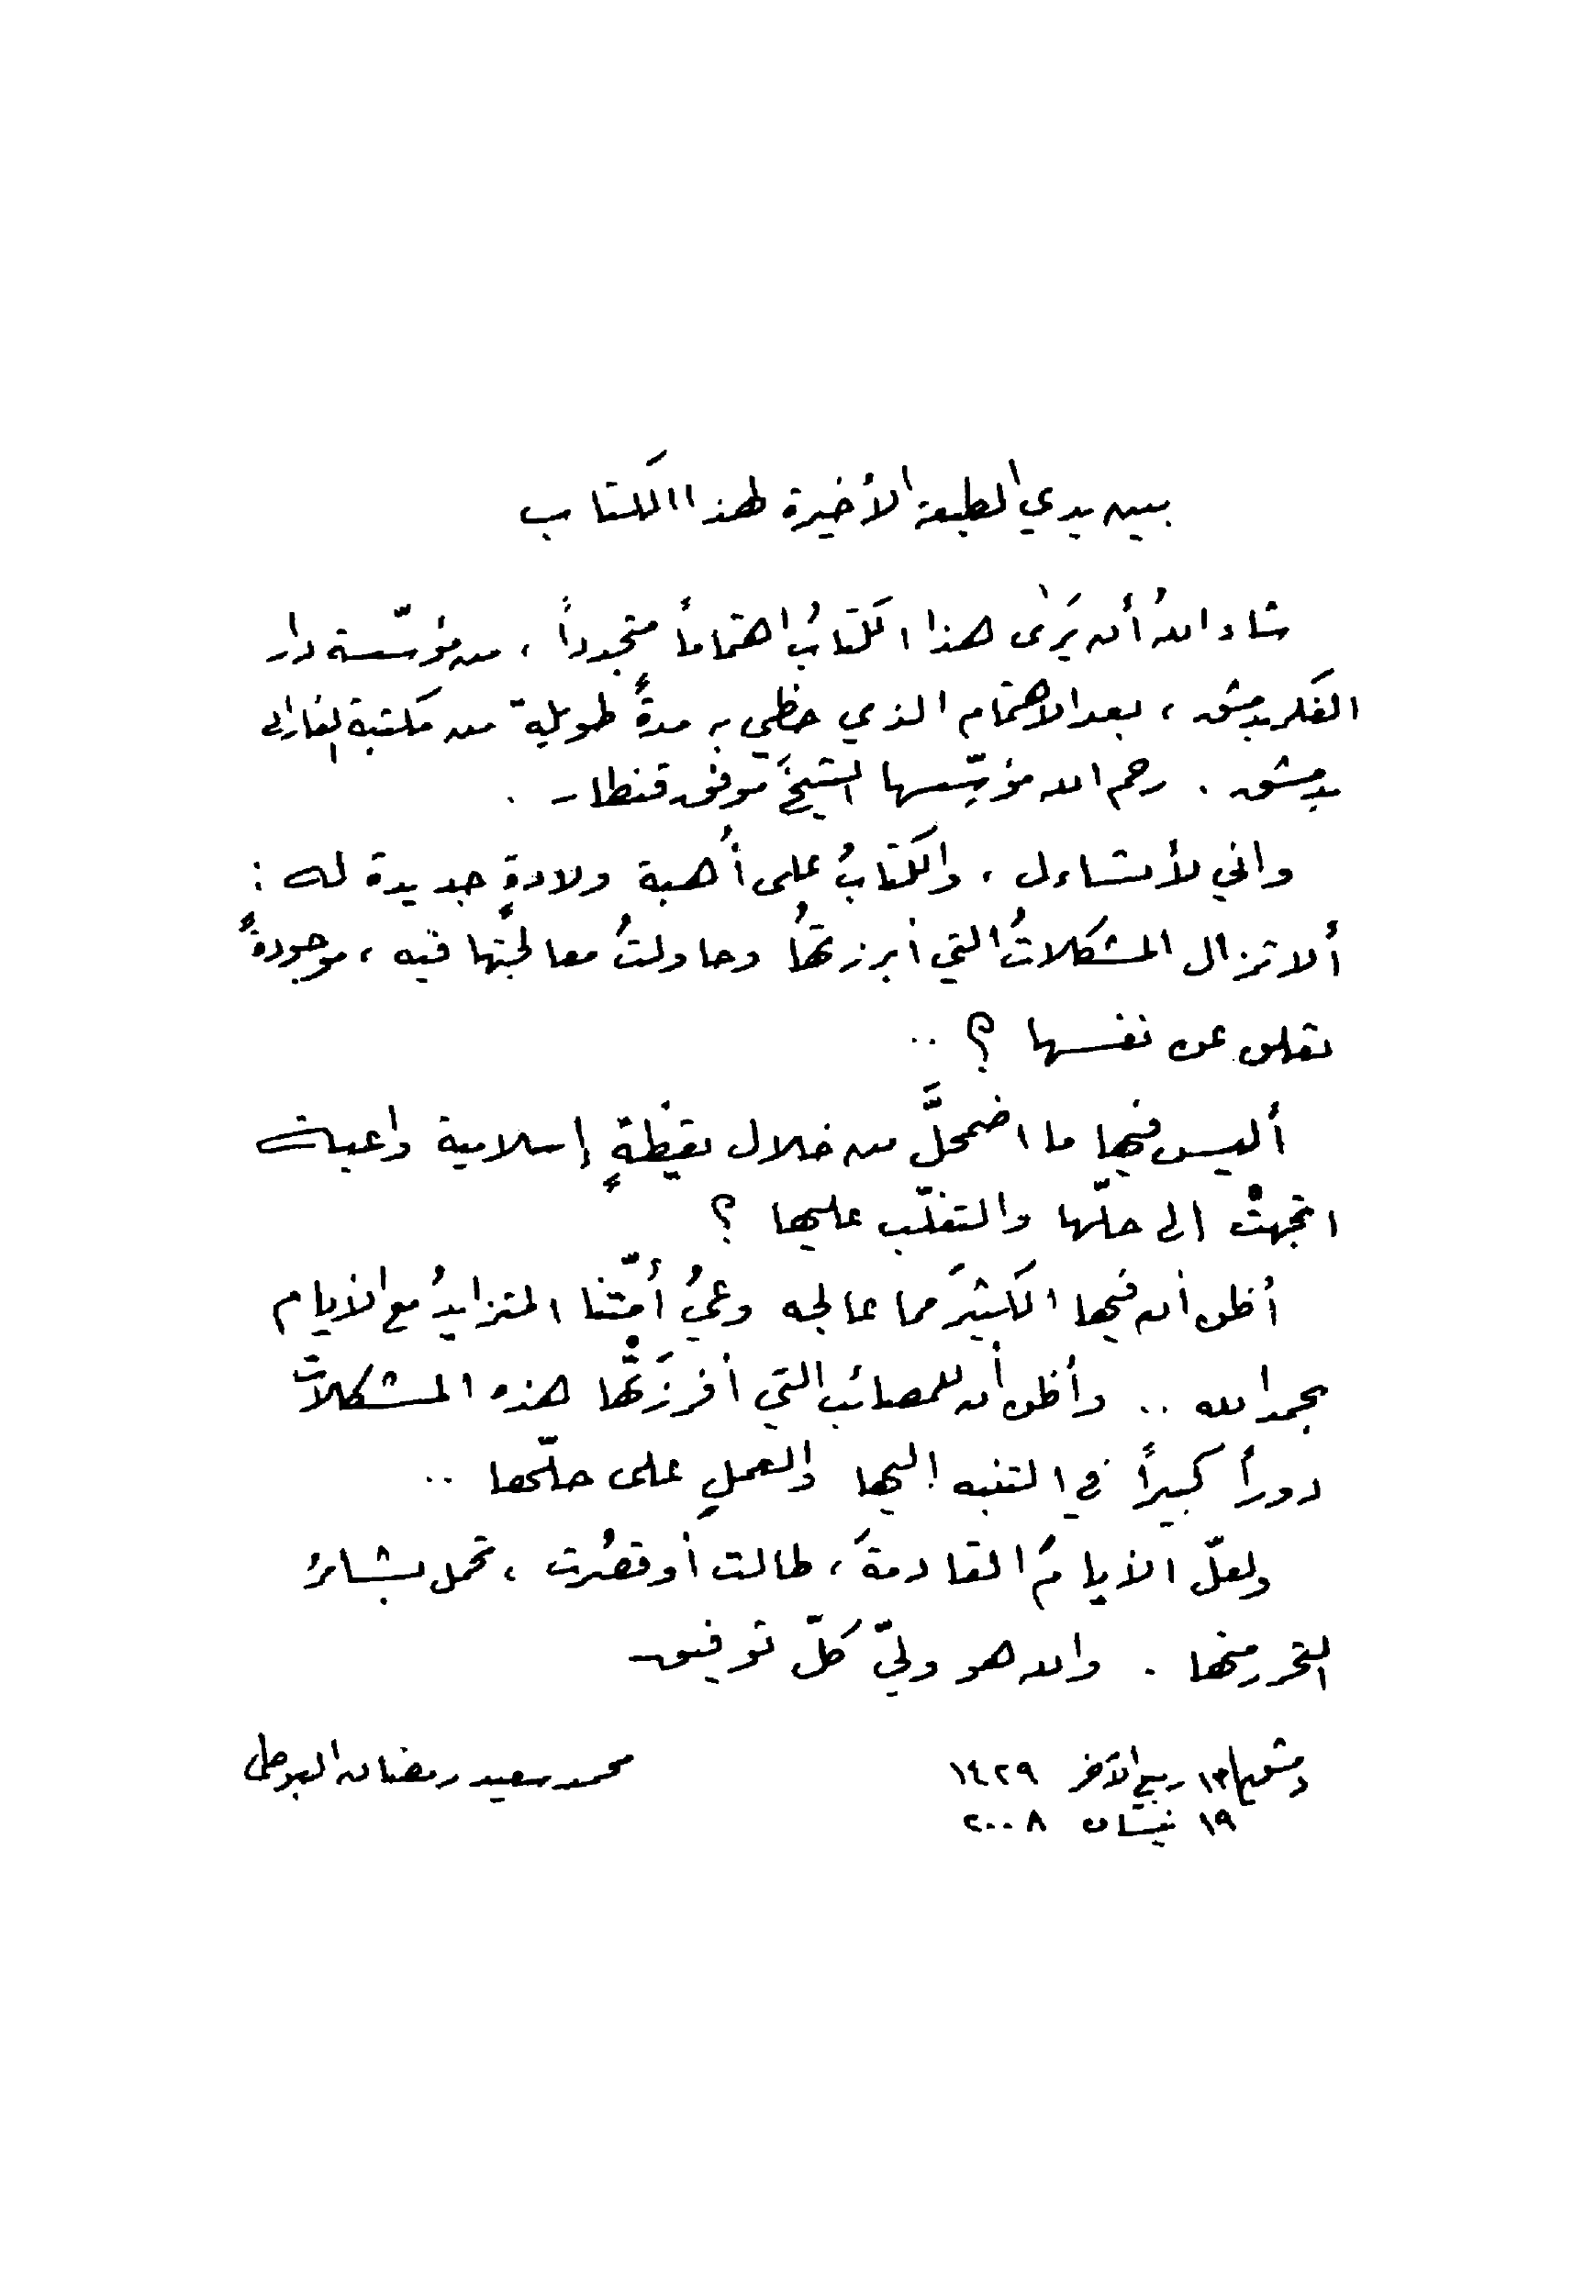 بين يدي الطبعة الأخيرة لهذا الكتاب
شاء اللهُ أن يَرىٰ هذا الكتابُ اهتماماً متجدداً ، من مؤسّسة دار
الفكر بدمشق ، بعد الاهتمام الذي حظي به مدةً طويلة من مكتبة الفارابي
بدمشق . رحم الله مؤسِّسها الشيخَ موفق قنطار .
واني لأتساءل ، والكتابُ على أُهبة ولادةٍ جديدة له :
ألا تزال المشكلاتُ التي أبرزتُها وحاولتُ معالجتَها فيه ، موجودةً
تعلن عن نفسها ؟ ..
أليس فيها ما اضمحلَّ من خلال يقظةٍ إسلامية واعية
اتجهتْ الى حلّها والتغلّب عليها ؟
أظن أن فيها الكثيرَ مما عالجه وعيُ أمّتنا المتزايدُ مع الأيام
بحمد الله .. وأظن أن للمصائب التي أفرزَتْها هذه المشكلات
دوراً كبيراً في التنبه اليها والعملِ على حلّها ..
ولعلّ الأيامَ القادمةَ ، طالت أو قصُرت ، تحمل بشائر
التحرر منها . والله هو وليّ كلّ توفيق
دمشق ١٣ ربيع الآخر ١٤٢٩ محمد سعيد رمضان البوطي
١٩ نيسان ٢٠٠٨